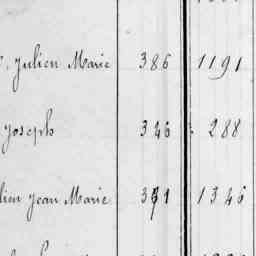 Julien Marie 386 1191
Joseph 346 288
lien Jean Marie 391 1346